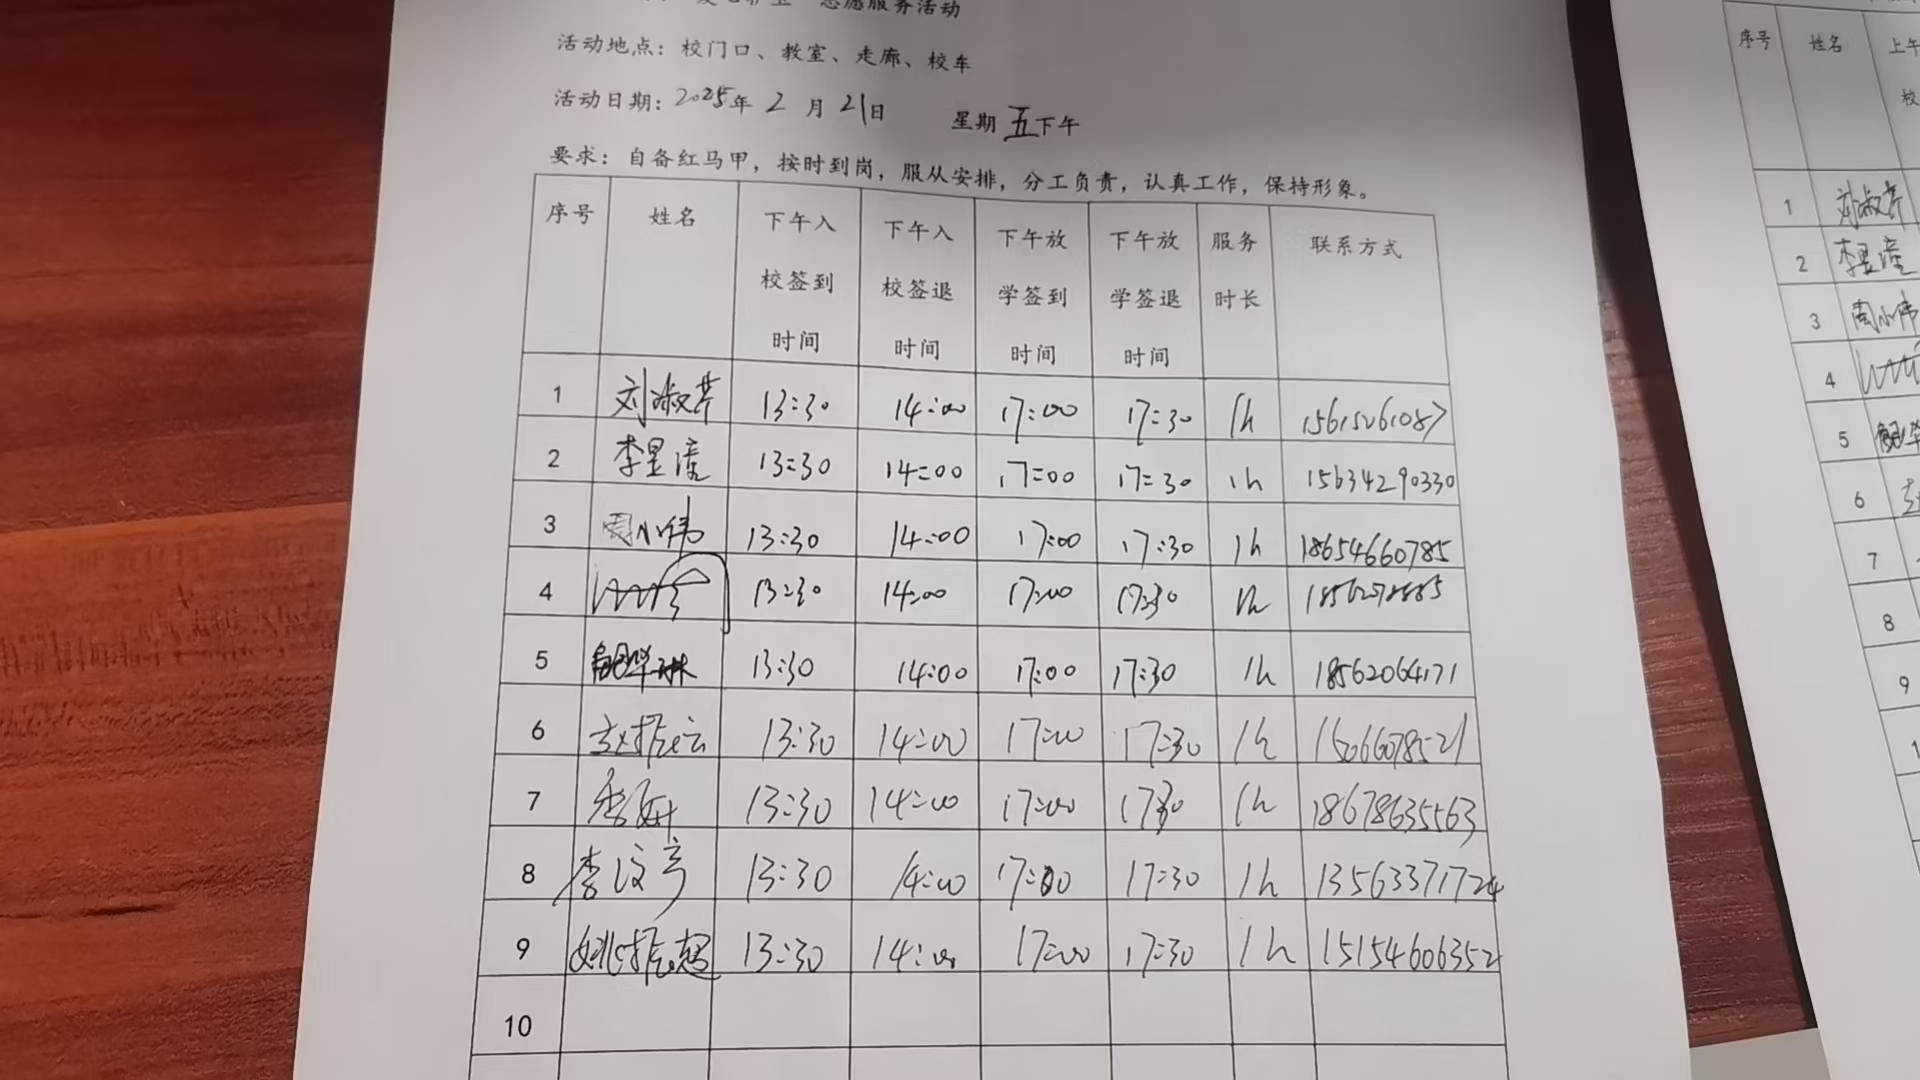 志愿服务活动
活动地点：校门口、教室、走廊、校车
活动日期：2025年 2 月 21日 星期五下午
要求：自备红马甲，按时到岗，服从安排，分工负责，认真工作，保持形象。
序号 姓名 下午入校签到时间 下午入校签退时间 下午放学签到时间 下午放学签退时间 服务时长 联系方式
1 刘淑芹 13:30 14:00 17:00 17:30 1h 15615261087
2 李昱潼 13:30 14:00 17:00 17:30 1h 15634290330
3 周小伟 13:30 14:00 17:00 17:30 1h 18654660785
4 13:30 14:00 17:00 17:30 1h
5 13:30 14:00 17:00 17:30 1h 18562064171
6 赵振云 13:30 14:00 17:00 17:30 1h 15066078521
7 13:30 14:00 17:00 17:30 1h 18678635563
8 李文亭 13:30 14:00 17:00 17:30 1h 13563371724
9 姚振超 13:30 14:00 17:00 17:30 1h 15154606352
10
序号 姓名 上午
校
1 刘淑芹
2 李昱潼
3 周小伟
4
5
6
7
8
9